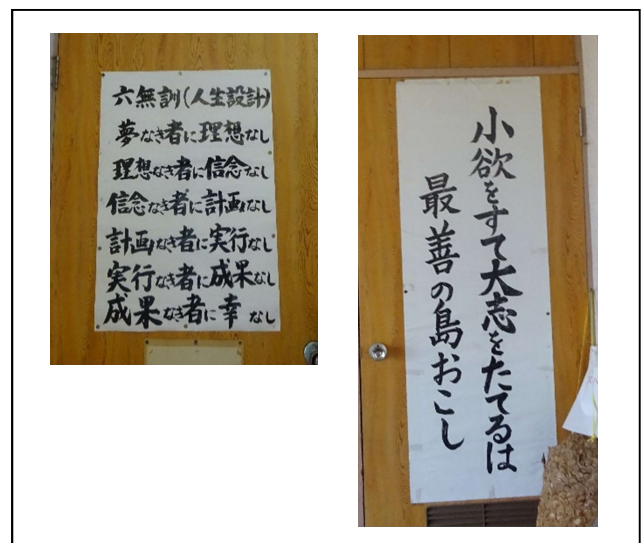 六無訓(人生設計)
夢なき者に理想なし
理想なき者に信念なし
信念なき者に計画なし
計画なき者に実行なし
実行なき者に成果なし
成果なき者に幸なし
小欲をすて大志をたてるは
最善の島おこし